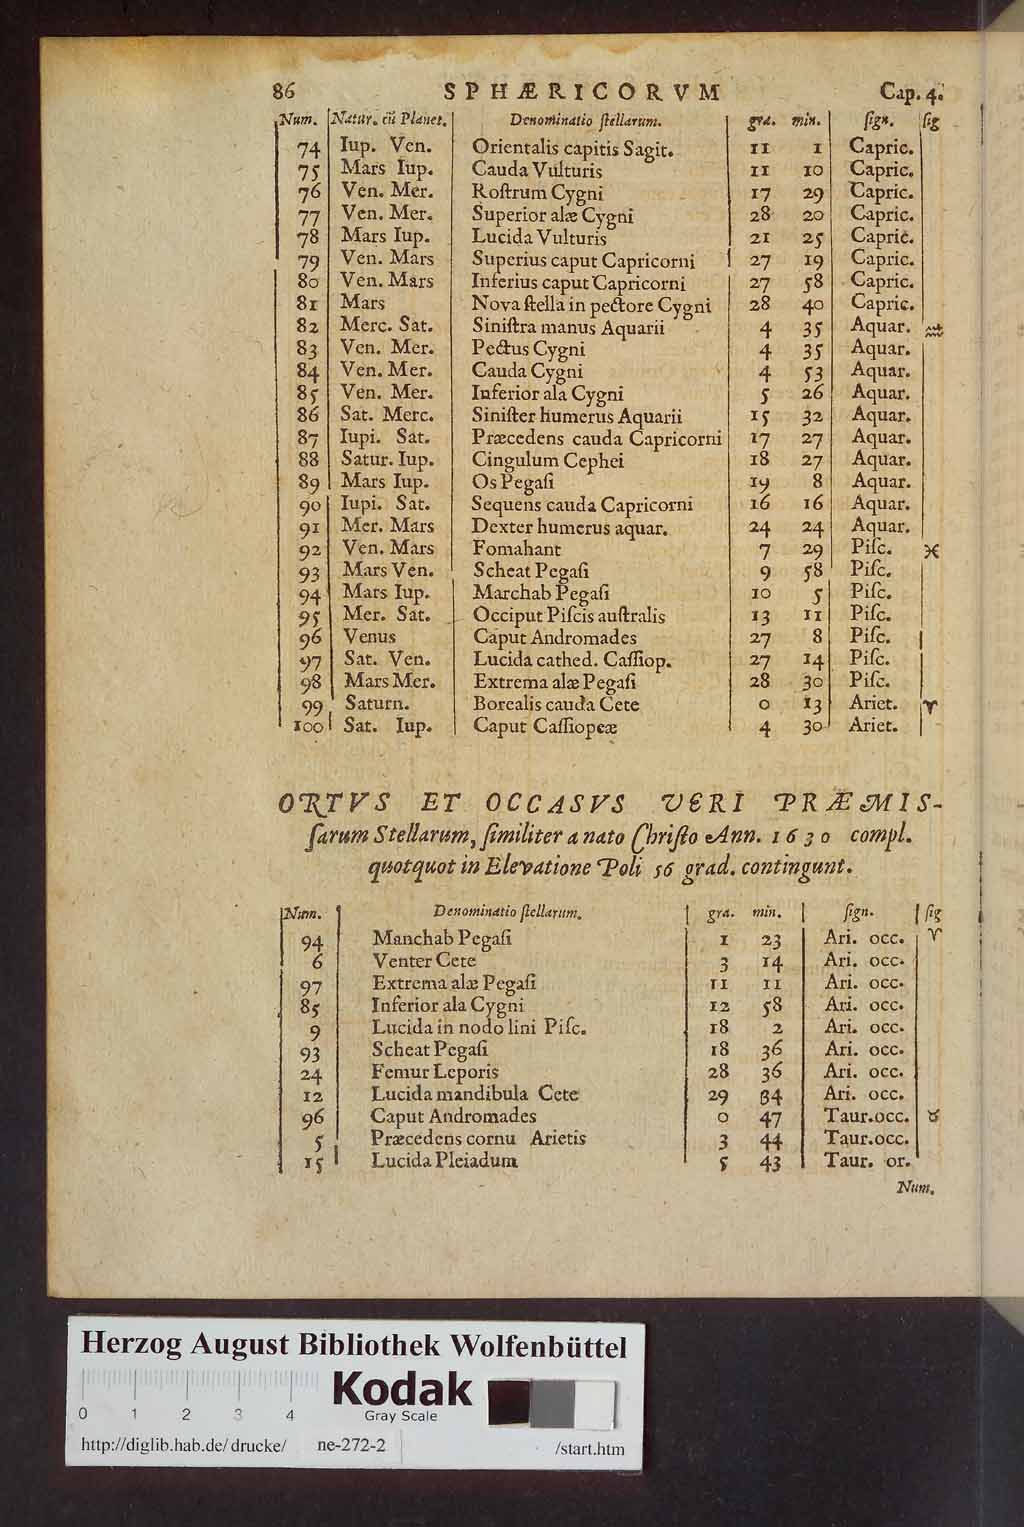 86 SPHÆRICORVM Cap. 4.
Num. Natur. cũ Planet. Denominatio ſtellarum. gra. min. ſign. ſig
74 Iup. Ven. Orientalis capitis Sagit. 11 1 Capric.
75 Mars Iup. Cauda Vulturis 11 10 Capric.
76 Ven. Mer. Roſtrum Cygni 17 29 Capric.
77 Ven. Mer. Superior alæ Cygni 28 20 Capric.
78 Mars Iup. Lucida Vulturis 21 25 Capric.
79 Ven. Mars Superius caput Capricorni 27 19 Capric.
80 Ven. Mars Inferius caput Capricorni 27 58 Capric.
81 Mars Nova ſtella in pectore Cygni 28 40 Capric.
82 Merc. Sat. Siniſtra manus Aquarii 4 35 Aquar. ♒
83 Ven. Mer. Pectus Cygni 4 35 Aquar.
84 Ven. Mer. Cauda Cygni 4 53 Aquar.
85 Ven. Mer. Inferior ala Cygni 5 26 Aquar.
86 Sat. Merc. Siniſter humerus Aquarii 15 32 Aquar.
87 Iupi. Sat. Præcedens cauda Capricorni 17 27 Aquar.
88 Satur. Iup. Cingulum Cephei 18 27 Aquar.
89 Mars Iup. Os Pegaſi 19 8 Aquar.
90 Iupi. Sat. Sequens cauda Capricorni 16 16 Aquar.
91 Mer. Mars Dexter humerus aquar. 24 24 Aquar.
92 Ven. Mars Fomahant 7 29 Piſc. ♓
93 Mars Ven. Scheat Pegaſi 9 58 Piſc.
94 Mars Iup. Marchab Pegaſi 10 5 Piſc.
95 Mer. Sat. Occiput Piſcis auſtralis 13 11 Piſc.
96 Venus Caput Andromades 27 8 Piſc.
97 Sat. Ven. Lucida cathed. Caſſiop. 27 14 Piſc.
98 Mars Mer. Extrema alæ Pegaſi 28 30 Piſc.
99 Saturn. Borealis cauda Cete 0 13 Ariet. ♈
100 Sat. Iup. Caput Caſſiopeæ 4 30 Ariet.
ORTVS ET OCCASVS VERI PRÆMIS-
ſarum Stellarum, ſimiliter a nato Chriſto Ann. 1630 compl.
quotquot in Elevatione Poli 56 grad. contingunt.
Num. Denominatio ſtellarum. gra. min. ſign. ſig
94 Manchab Pegaſi 1 23 Ari. occ. ♈
6 Venter Cete 3 14 Ari. occ.
97 Extrema alæ Pegaſi 11 11 Ari. occ.
85 Inferior ala Cygni 12 58 Ari. occ.
9 Lucida in nodo lini Piſc. 18 2 Ari. occ.
93 Scheat Pegaſi 18 36 Ari. occ.
24 Femur Leporis 28 36 Ari. occ.
12 Lucida mandibula Cete 29 34 Ari. occ.
96 Caput Andromades 0 47 Taur. occ. ♉
5 Præcedens cornu Arietis 3 44 Taur. occ.
15 Lucida Pleiadum 5 43 Taur. or.
Num.
Herzog August Bibliothek Wolfenbüttel
0 1 2 3 4 Kodak
Gray Scale
http://diglib.hab.de/drucke/ ne-272-2 /start.htm